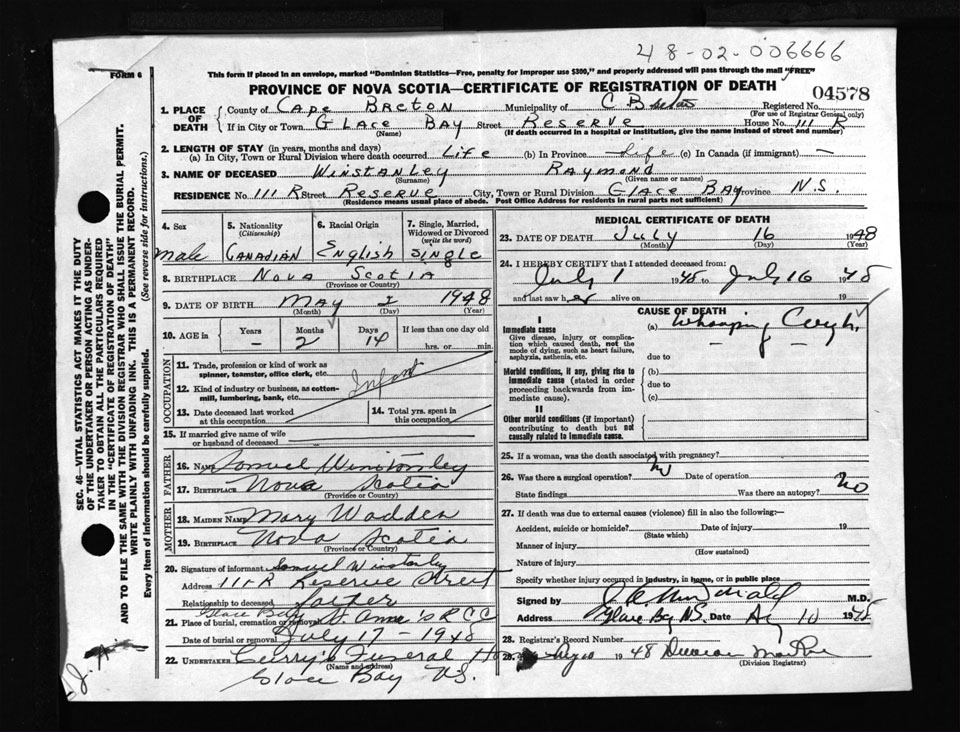 48-02-006666
FORM 6
This form if placed in an envelope, marked "Dominion Statistics—Free, penalty for improper use $300," and properly addressed will pass through the mail "FREE"
PROVINCE OF NOVA SCOTIA—CERTIFICATE OF REGISTRATION OF DEATH
04578
1. PLACE OF DEATH
County of Cape Breton Municipality of C B Registered No.
(For use of Registrar General only)
If in City or Town Glace Bay Street Reserve House No. 111 R
(Name) (If death occurred in a hospital or institution, give the name instead of street and number)
2. LENGTH OF STAY (in years, months and days)
(a) In City, Town or Rural Division where death occurred Life (b) In Province Life (c) In Canada (if immigrant) —
3. NAME OF DECEASED Winstanley Raymond
(Surname) (Given name or names)
RESIDENCE No. 111 R Street Reserve City, Town or Rural Division Glace Bay Province N.S.
(Residence means usual place of abode. Post Office Address for residents in rural parts not sufficient)
4. Sex
male
5. Nationality
(Citizenship)
Canadian
6. Racial Origin
English
7. Single, Married, Widowed or Divorced
(write the word)
Single
8. BIRTHPLACE Nova Scotia
(Province or Country)
9. DATE OF BIRTH May 2 1948
(Month) (Day) (Year)
10. AGE in
Years Months Days If less than one day old
— 2 14 hrs. or min.
OCCUPATION
11. Trade, profession or kind of work as
spinner, teamster, office clerk, etc.
12. Kind of industry or business, as cotton-
mill, lumbering, bank, etc.
Infant
13. Date deceased last worked
at this occupation
14. Total yrs. spent in
this occupation
15. If married give name of wife
or husband of deceased
FATHER
16. Name Samuel Winstanley
17. Birthplace Nova Scotia
(Province or Country)
MOTHER
18. Maiden Name Mary Wadden
19. Birthplace Nova Scotia
(Province or Country)
20. Signature of informant Samuel Winstanley
Address 111 R Reserve Street
Relationship to deceased father
21. Place of burial, cremation or removal Glace Bay St. Anne's R C C
Date of burial or removal July 17 - 1948
22. UNDERTAKER Curry's Funeral Home
(Name and address)
Glace Bay N.S.
MEDICAL CERTIFICATE OF DEATH
23. DATE OF DEATH July 16 1948
(Month) (Day) (Year)
24. I HEREBY CERTIFY that I attended deceased from:
July 1 1948 to July 16 1948
and last saw her alive on 19
CAUSE OF DEATH
I
Immediate cause
Give disease, injury or complica-
tion which caused death, not the
mode of dying, such as heart failure,
asphyxia, asthenia, etc.
(a) Whooping Cough
due to
Morbid conditions, if any, giving rise to
immediate cause (stated in order
proceeding backwards from im-
mediate cause).
(b)
due to
(c)
II
Other morbid conditions (if important)
contributing to death but not
causally related to immediate cause.
25. If a woman, was the death associated with pregnancy?
26. Was there a surgical operation? No Date of operation 19
State findings Was there an autopsy? No
27. If death was due to external causes (violence) fill in also the following:—
Accident, suicide or homicide? Date of injury 19
(State which)
Manner of injury
(How sustained)
Nature of injury
Specify whether injury occurred in industry, in home, or in public place
Signed by M.D.
Address Glace Bay N.S. Date Aug 10 1948
28. Registrar's Record Number
29. Aug 10 1948
(Division Registrar)
SEC. 46—VITAL STATISTICS ACT MAKES IT THE DUTY
OF THE UNDERTAKER OR PERSON ACTING AS UNDER-
TAKER TO OBTAIN ALL THE PARTICULARS REQUIRED
IN THE "CERTIFICATE OF REGISTRATION OF DEATH"
AND TO FILE THE SAME WITH THE DIVISION REGISTRAR WHO SHALL ISSUE THE BURIAL PERMIT.
WRITE PLAINLY WITH UNFADING INK. THIS IS A PERMANENT RECORD.
Every item of information should be carefully supplied. (See reverse side for instructions.)